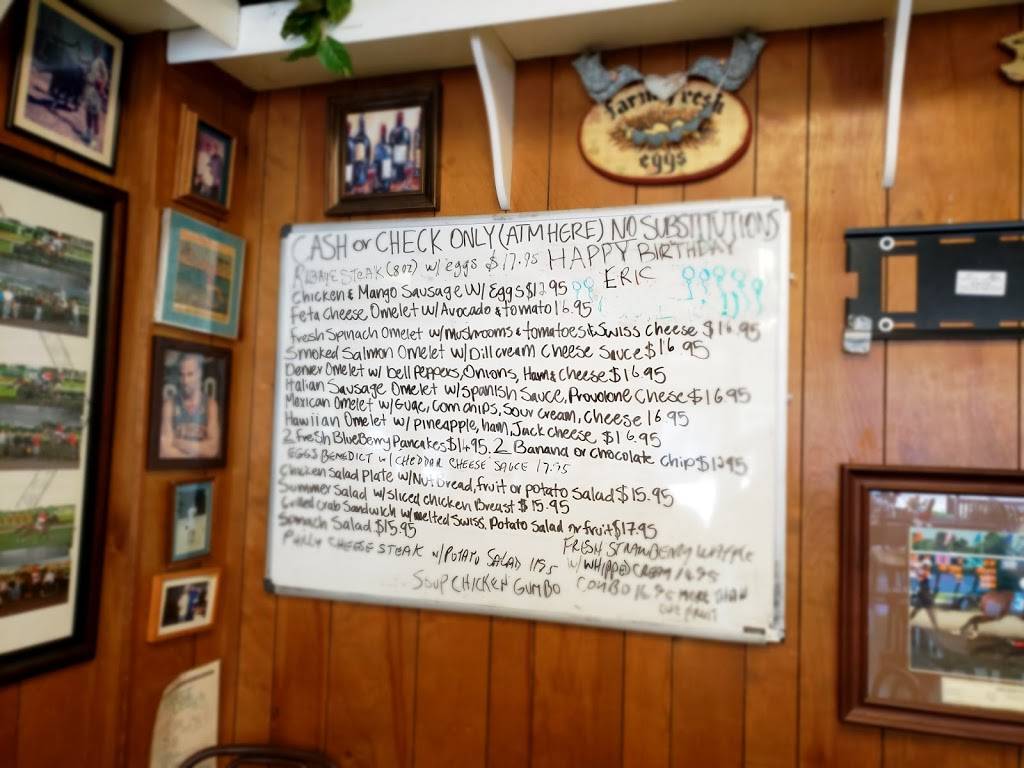 Farm Fresh
eggs
CASH or CHECK ONLY (ATM HERE) NO SUBSTITUTIONS
RIBEYE STEAK (8oz) w/ eggs $17.95 HAPPY BIRTHDAY
ERIC
Chicken & Mango Sausage W/ Eggs $12.95
Feta cheese, Omelet w/Avocado & tomato 16.95
Fresh Spinach Omelet w/mushrooms & tomatoes & Swiss cheese $16.95
Smoked Salmon Omelet w/Dill cream cheese Sauce $16.95
Denver Omelet w/ bell peppers, Onions, Ham & Cheese $16.95
Italian Sausage Omelet w/Spanish Sauce, Provolone Chese $16.95
Mexican Omelet w/Guac, Corn chips, Sour cream, cheese 16.95
Hawiian Omelet w/ pineapple, ham, Jack cheese $16.95
2 Fresh BlueBerry Pancakes $14.95. 2 Banana or chocolate chip $12.95
EGGS BENEDICT w/ CHEDDAR CHEESE SAUCE 17.95
Chicken Salad Plate w/Nut bread, fruit or potato Salad $15.95
Summer Salad w/Sliced chicken Breast $15.95
Grilled Crab Sandwich w/melted Swiss, Potato Salad or fruit $17.95
Spinach Salad $15.95
PHILLY CHEESE STEAK w/POTATO SALAD
FRESH STRAWBERRY WAFFLE
w/WHIPPED CREAM 16.95
SOUP CHICKEN GUMBO
COMBO 16.95 MORE THAN
ONE FRUIT